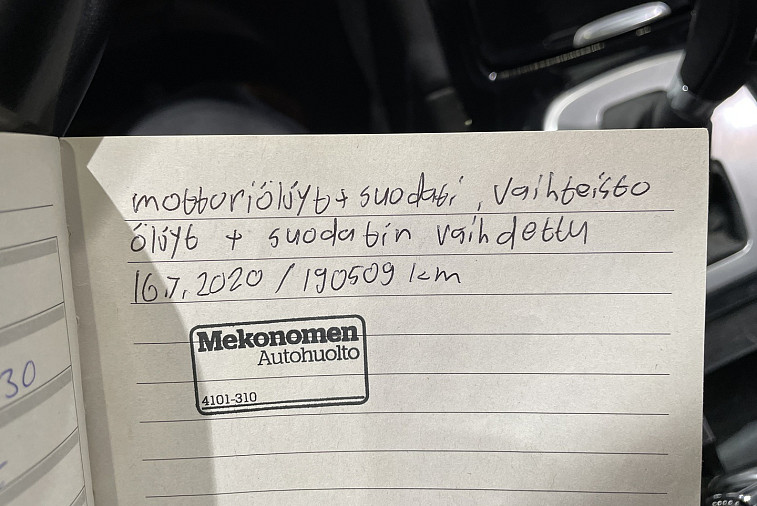 mottoriölyt + suodati, vaihteisto
ölyt + suodatin vaihdettu
16.7.2020 / 190509 km
Mekonomen
Autohuolto
4101-310
30